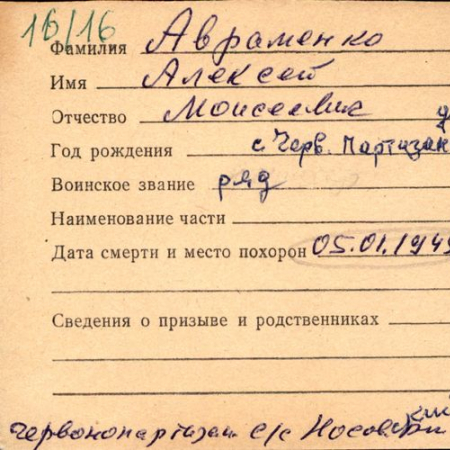 16/16
Фамилия Авраменко
Имя Алексей
Отчество Моисеевич
Год рождения с. Черв. Партизан
Воинское звание ряд
Наименование части
Дата смерти и место похорон 05.01.194
Сведения о призыве и родственниках
Червонопартизан с/с Носовский